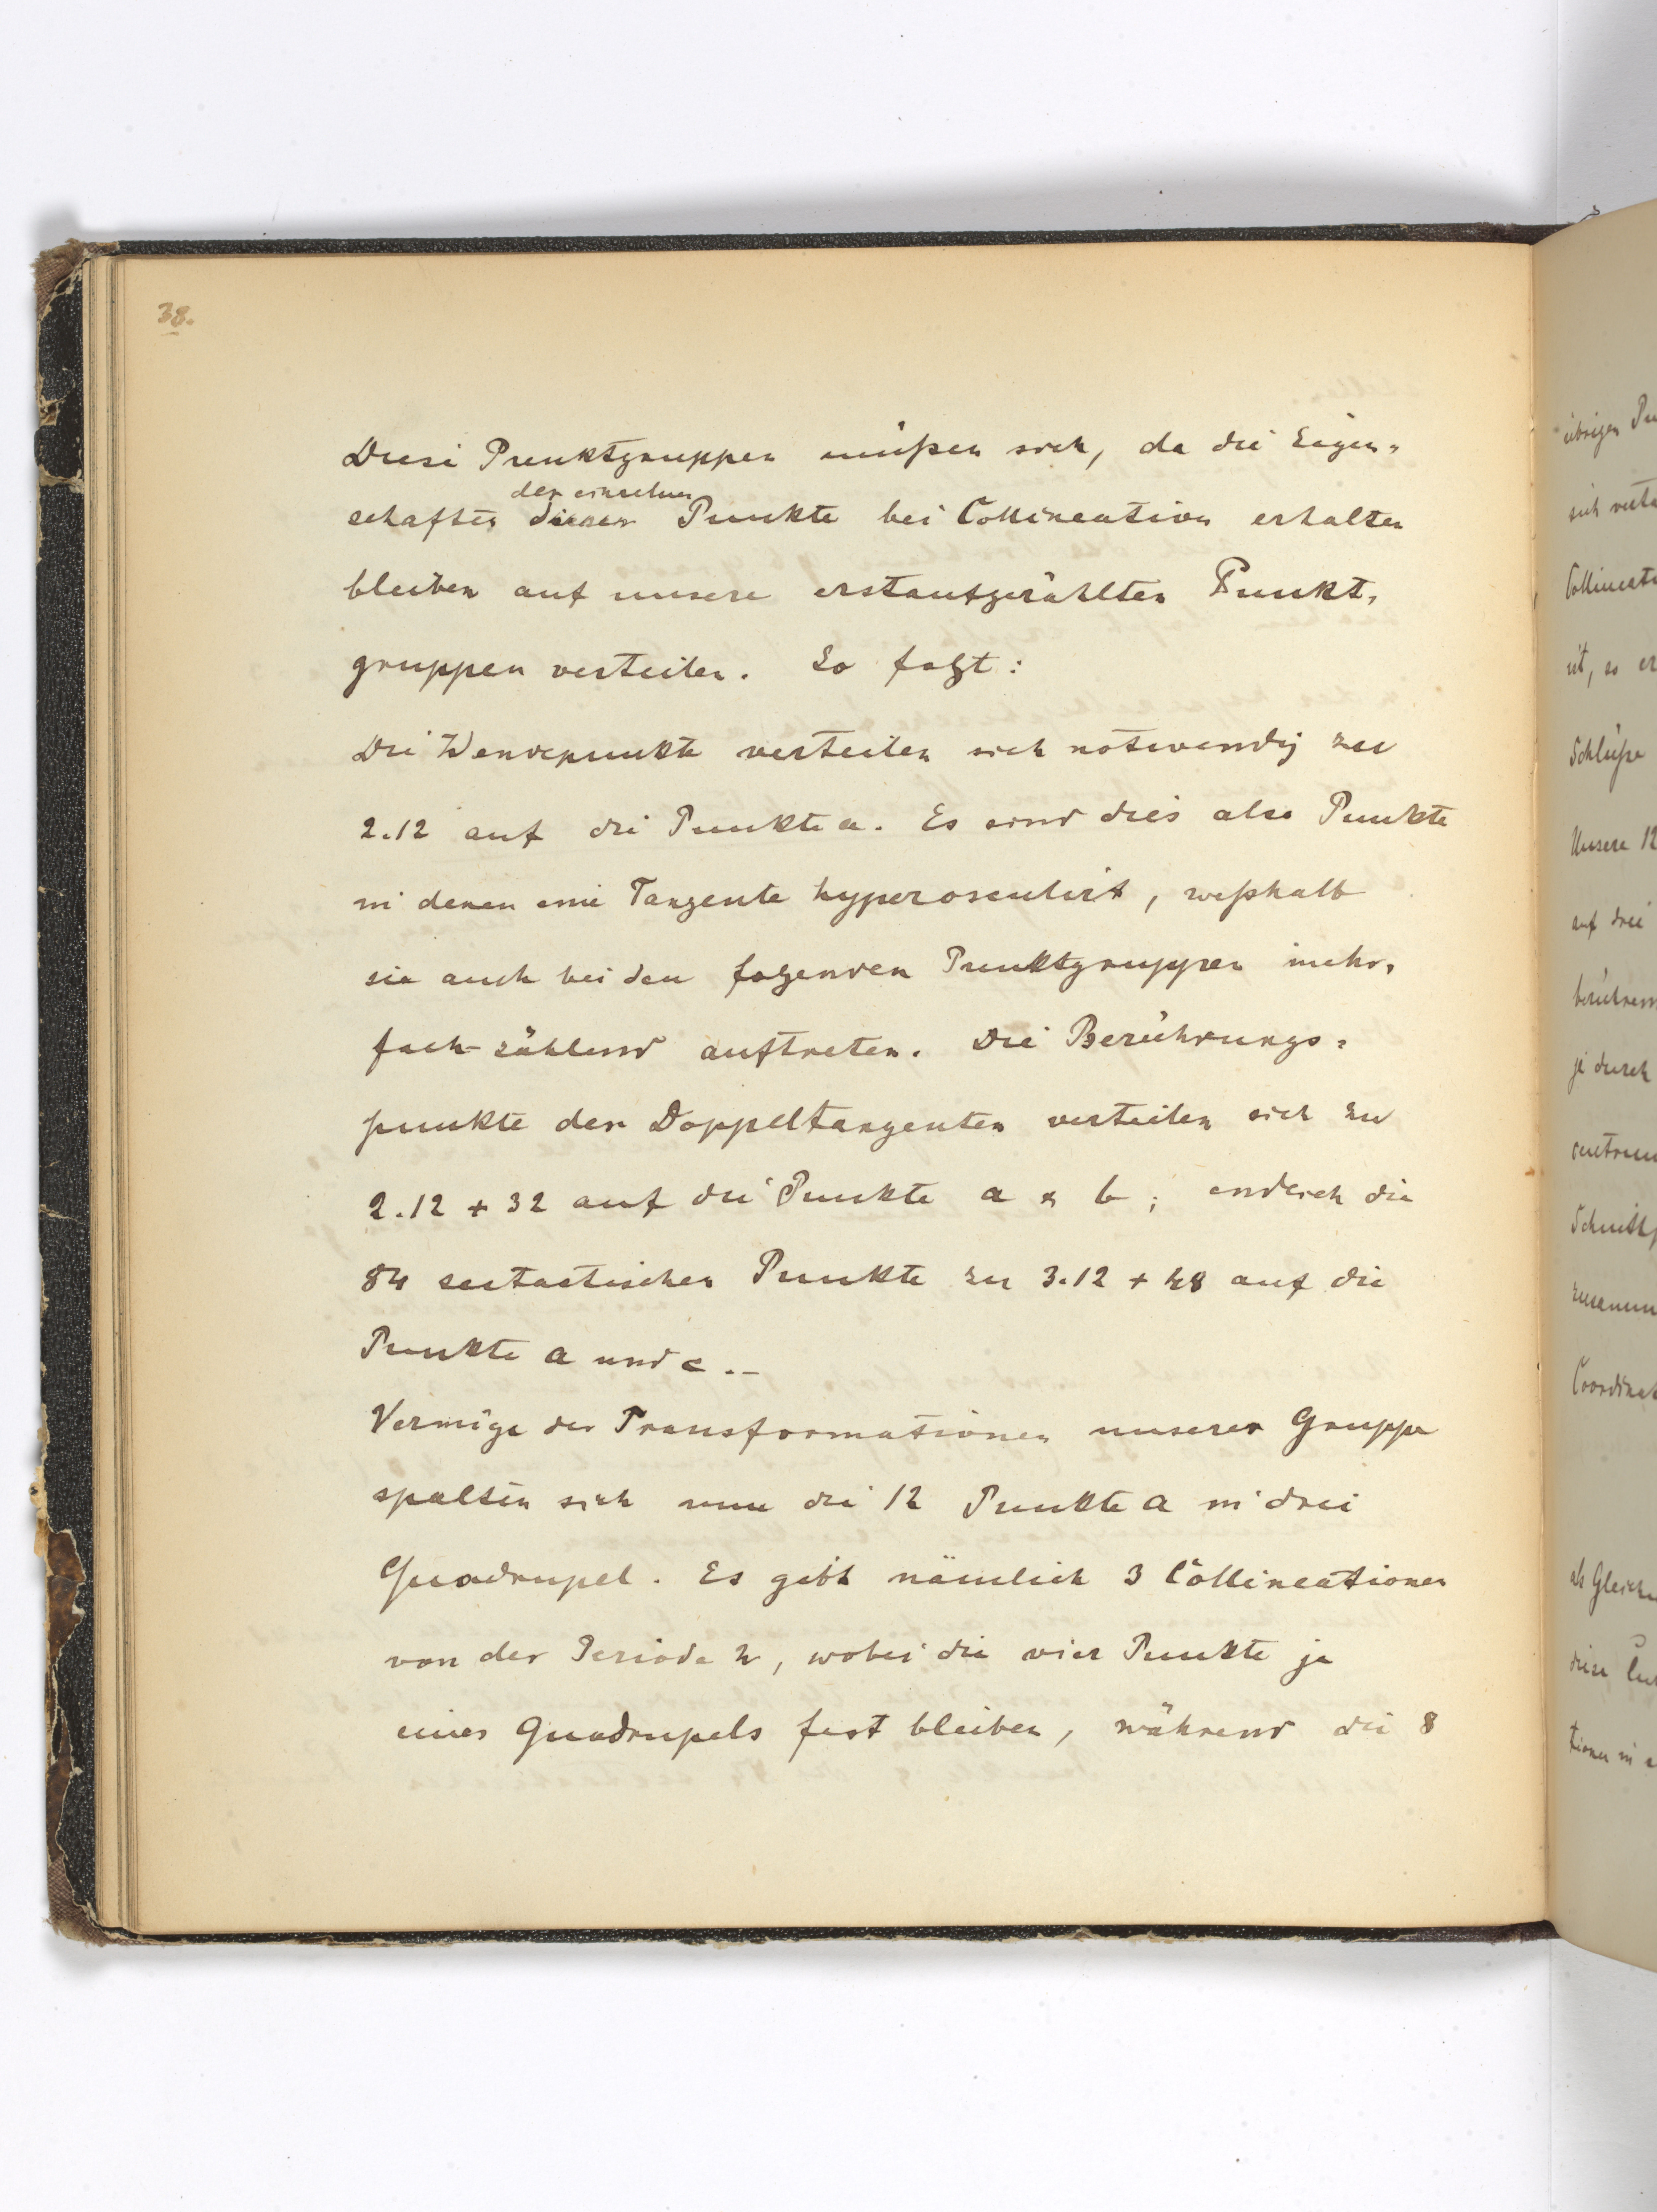 38.
Diese Punktgruppen müßen sich, da die Eigen-
der einzelnen
schaften dieser Punkte bei Collineation erhalten
bleiben auf unsere erstaufgezählten Punkt-
gruppen verteilen. So folgt:
Die Wendepunkte verteilen sich notwendig zu
2.12 auf die Punkte a. Es sind dies also Punkte
in denen eine Tangente hyperosculirt, weßhalb
sie auch bei den folgenden Punktgruppen mehr-
fach-zählend auftreten. Die Berührungs-
punkte der Doppeltangenten verteilen sich zu
2.12 + 32 auf die Punkte a & b; endlich die
84 sextactischen Punkte zu 3.12 + 48 auf die
Punkte a und c.—
Vermöge der Transformationen unserer Gruppe
spalten sich nun die 12 Punkte a in drei
Quadrupel. Es gibt nämlich 3 Collineationen
von der Periode 2, wobei die vier Punkte je
eines Quadrupels fest bleiben, während die 8
übrigen
sich
ist, so er
Schlüße
Unsere 12
auf drei
je durch
als
diese